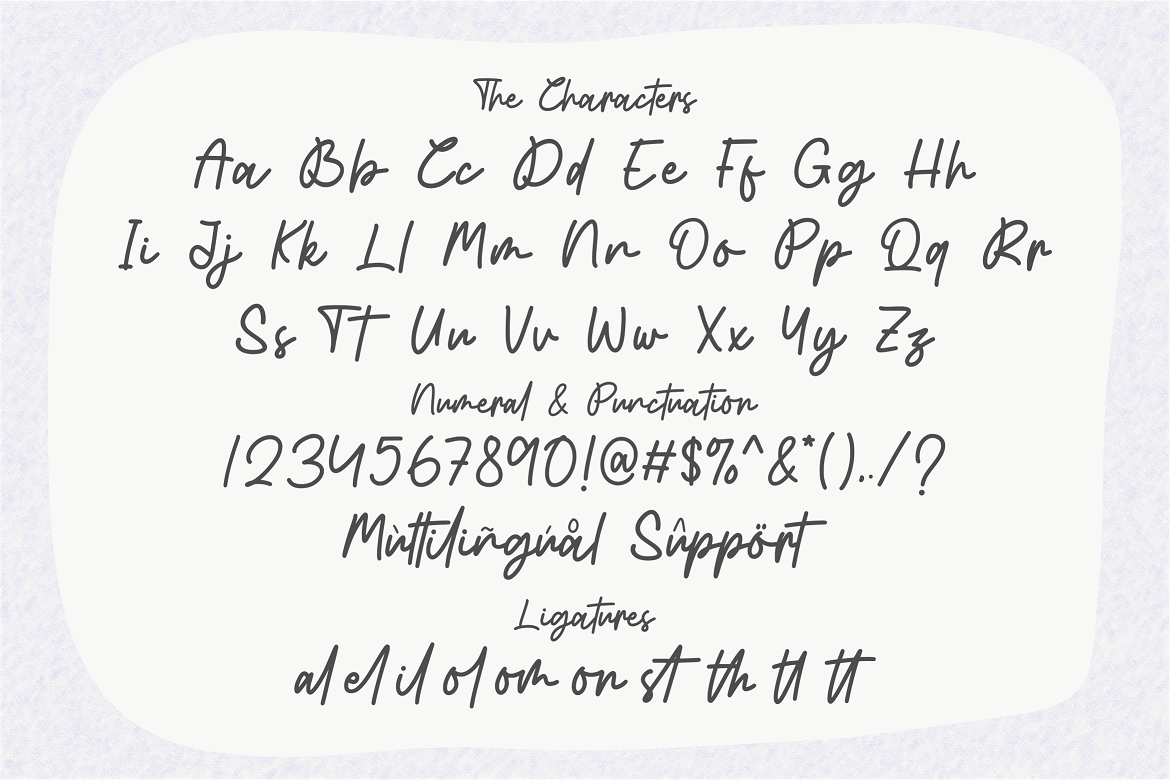 The Characters
Aa Bb Cc Dd Ee Ff Gg Hh
Ii Jj Kk Ll Mm Nn Oo Pp Qq Rr
Ss Tt Uu Vv Ww Xx Yy Zz
Numeral & Punctuation
1234567890!@#$%^&*().,/?
Mùttiliñgúål Sûppört
Ligatures
al el il ol om on st th tl tt